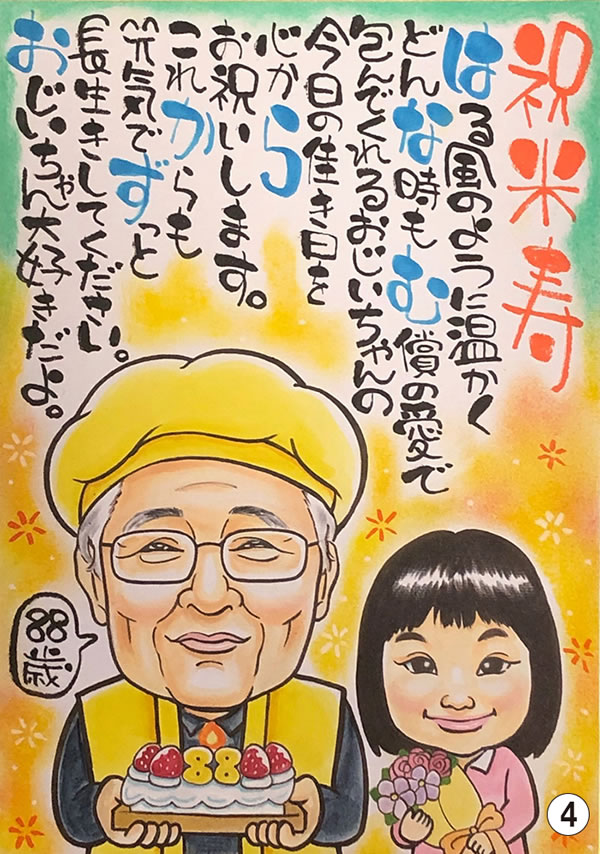 祝米寿
はる風のように温かく
どんな時もむ償の愛で
包んでくれるおじいちゃんの
今日の佳き日を
心から
お祝いします。
これからも
元気でずっと
長生きしてください。
おじいちゃん大好きだよ。
88歳
88
4